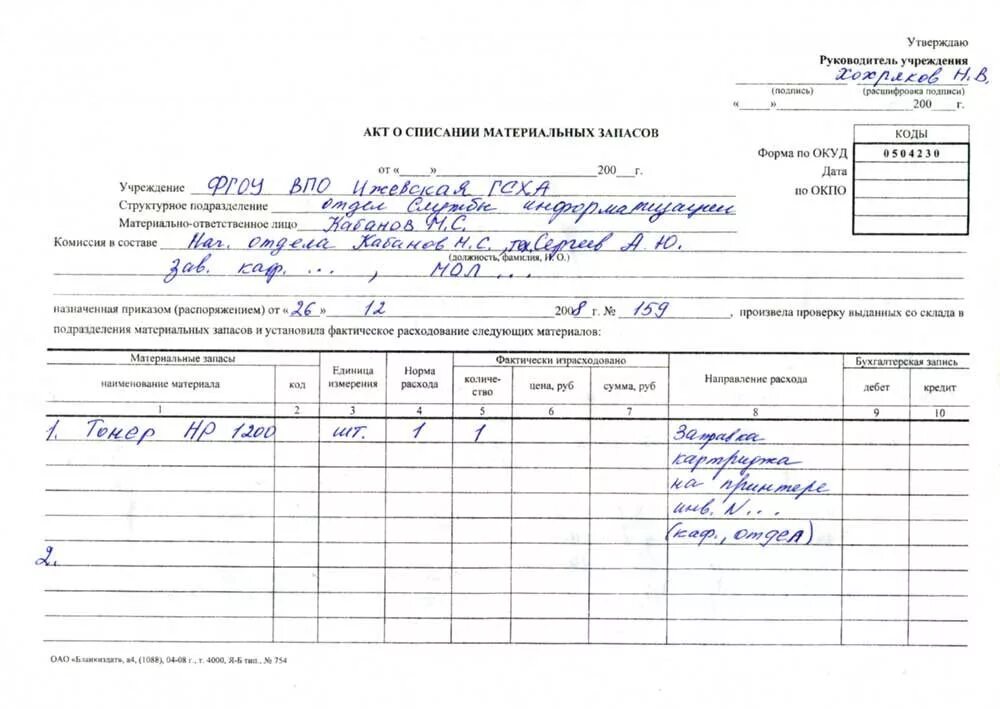 Утверждаю
Руководитель учреждения
Хохряков Н.В.
(подпись) (расшифровка подписи)
«____»____ 200___г.
АКТ О СПИСАНИИ МАТЕРИАЛЬНЫХ ЗАПАСОВ
КОДЫ
Форма по ОКУД 0504230
от «____»____ 200___г. Дата
по ОКПО
Учреждение ФГОУ ВПО Ижевская ГСХА
Структурное подразделение отдел Службы информатизации
Материально-ответственное лицо Кабанов М.С.
Комиссия в составе Нач. отдела Кабанов М.С., Сергеев А.Ю.
(должность, фамилия, И. О.)
зав. каф. ..., МОЛ ...
назначенная приказом (распоряжением) от «26» 12 2008 г. № 159, произвела проверку выданных со склада в
подразделения материальных запасов и установила фактическое расходование следующих материалов:
Материальные запасы Единица измерения Норма расхода Фактически израсходовано Направление расхода Бухгалтерская запись
наименование материала код количе-ство цена, руб сумма, руб дебет кредит
1 2 3 4 5 6 7 8 9 10
1. Тонер HP 1200 шт. 1 1 Заправка
картриджа
на принтере
инв. N...
(каф., отдел)
2.
ОАО «Бланкиздат», а4, (1088), 04-08 г., т. 4000, Я-Б тип., № 754